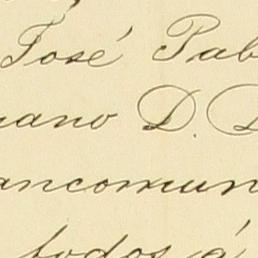 José Pab
ano D. D
ancomun
todos á